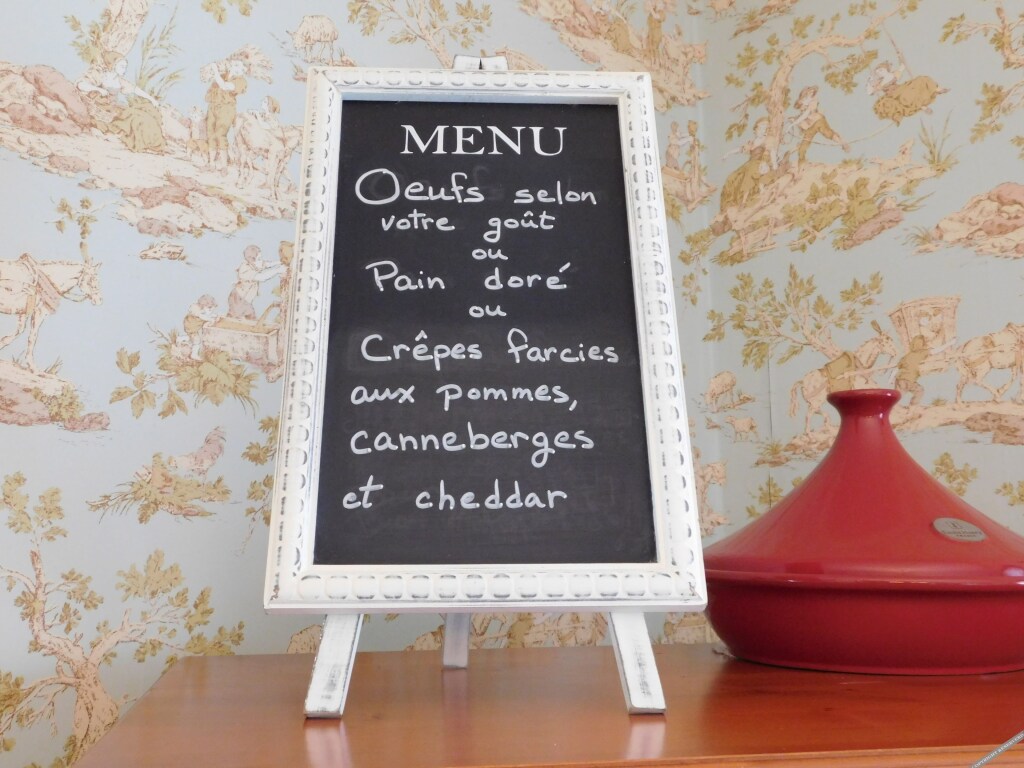 MENU
Oeufs selon
votre goût
ou
Pain doré
ou
Crêpes farcies
aux pommes,
canneberges
et cheddar